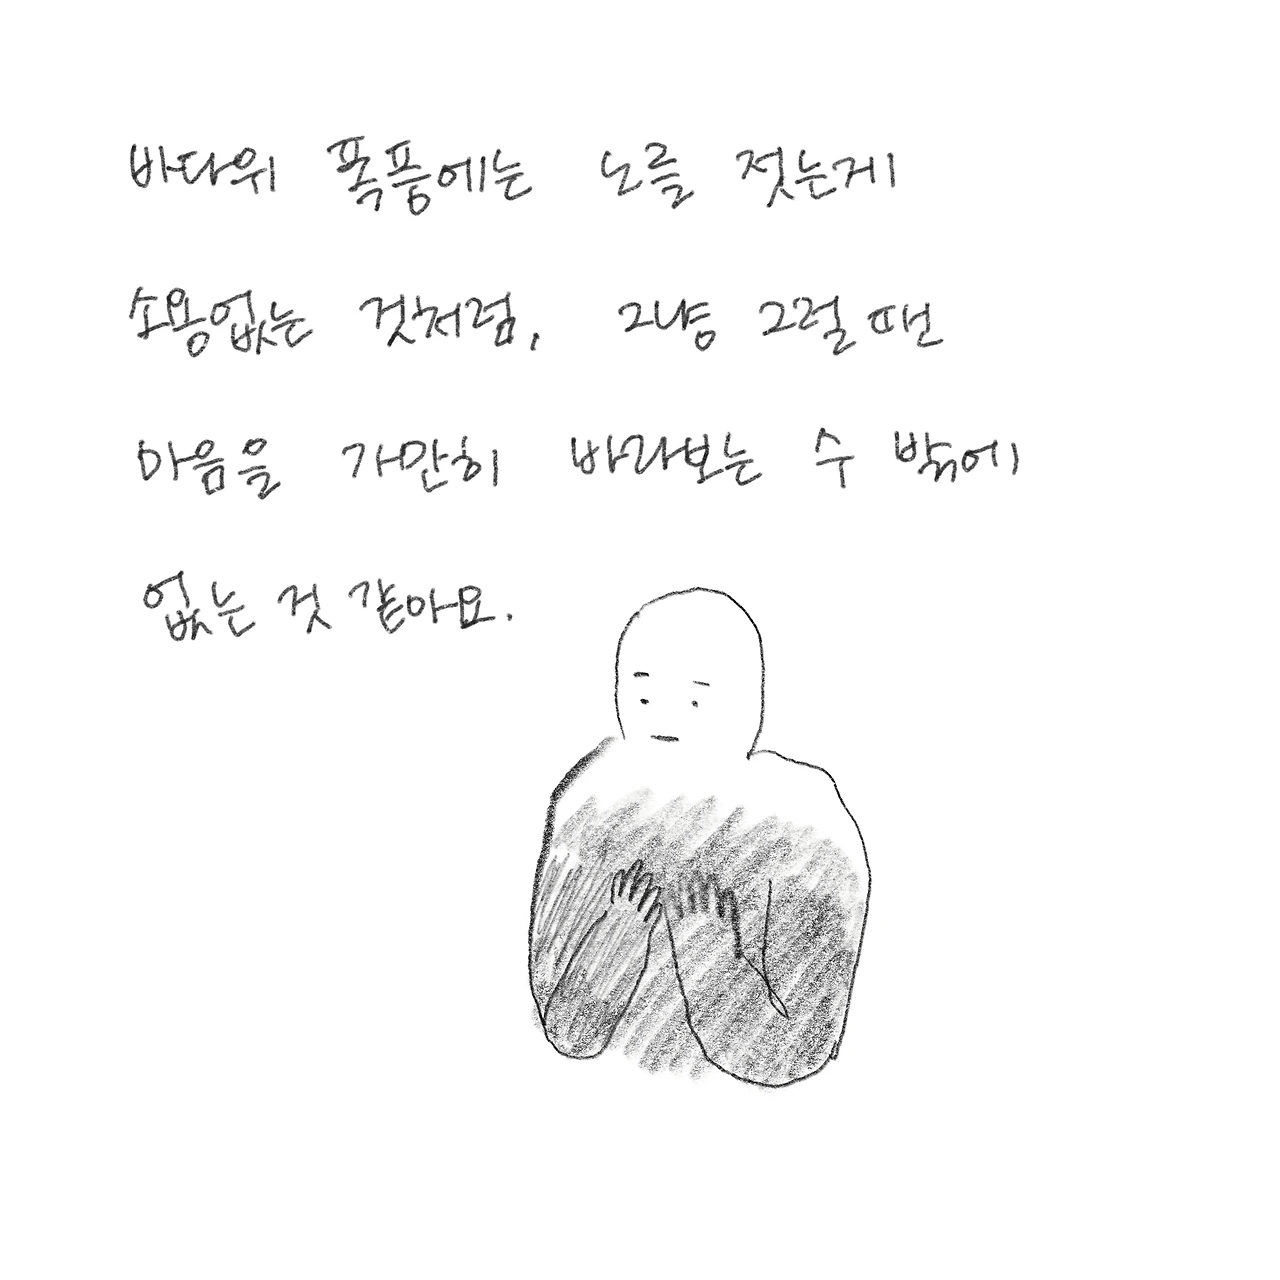 바다위 폭풍에는 노를 젓는게
소용없는 것처럼, 그냥 그럴 땐
마음을 가만히 바라보는 수 밖에
없는 것 같아요.